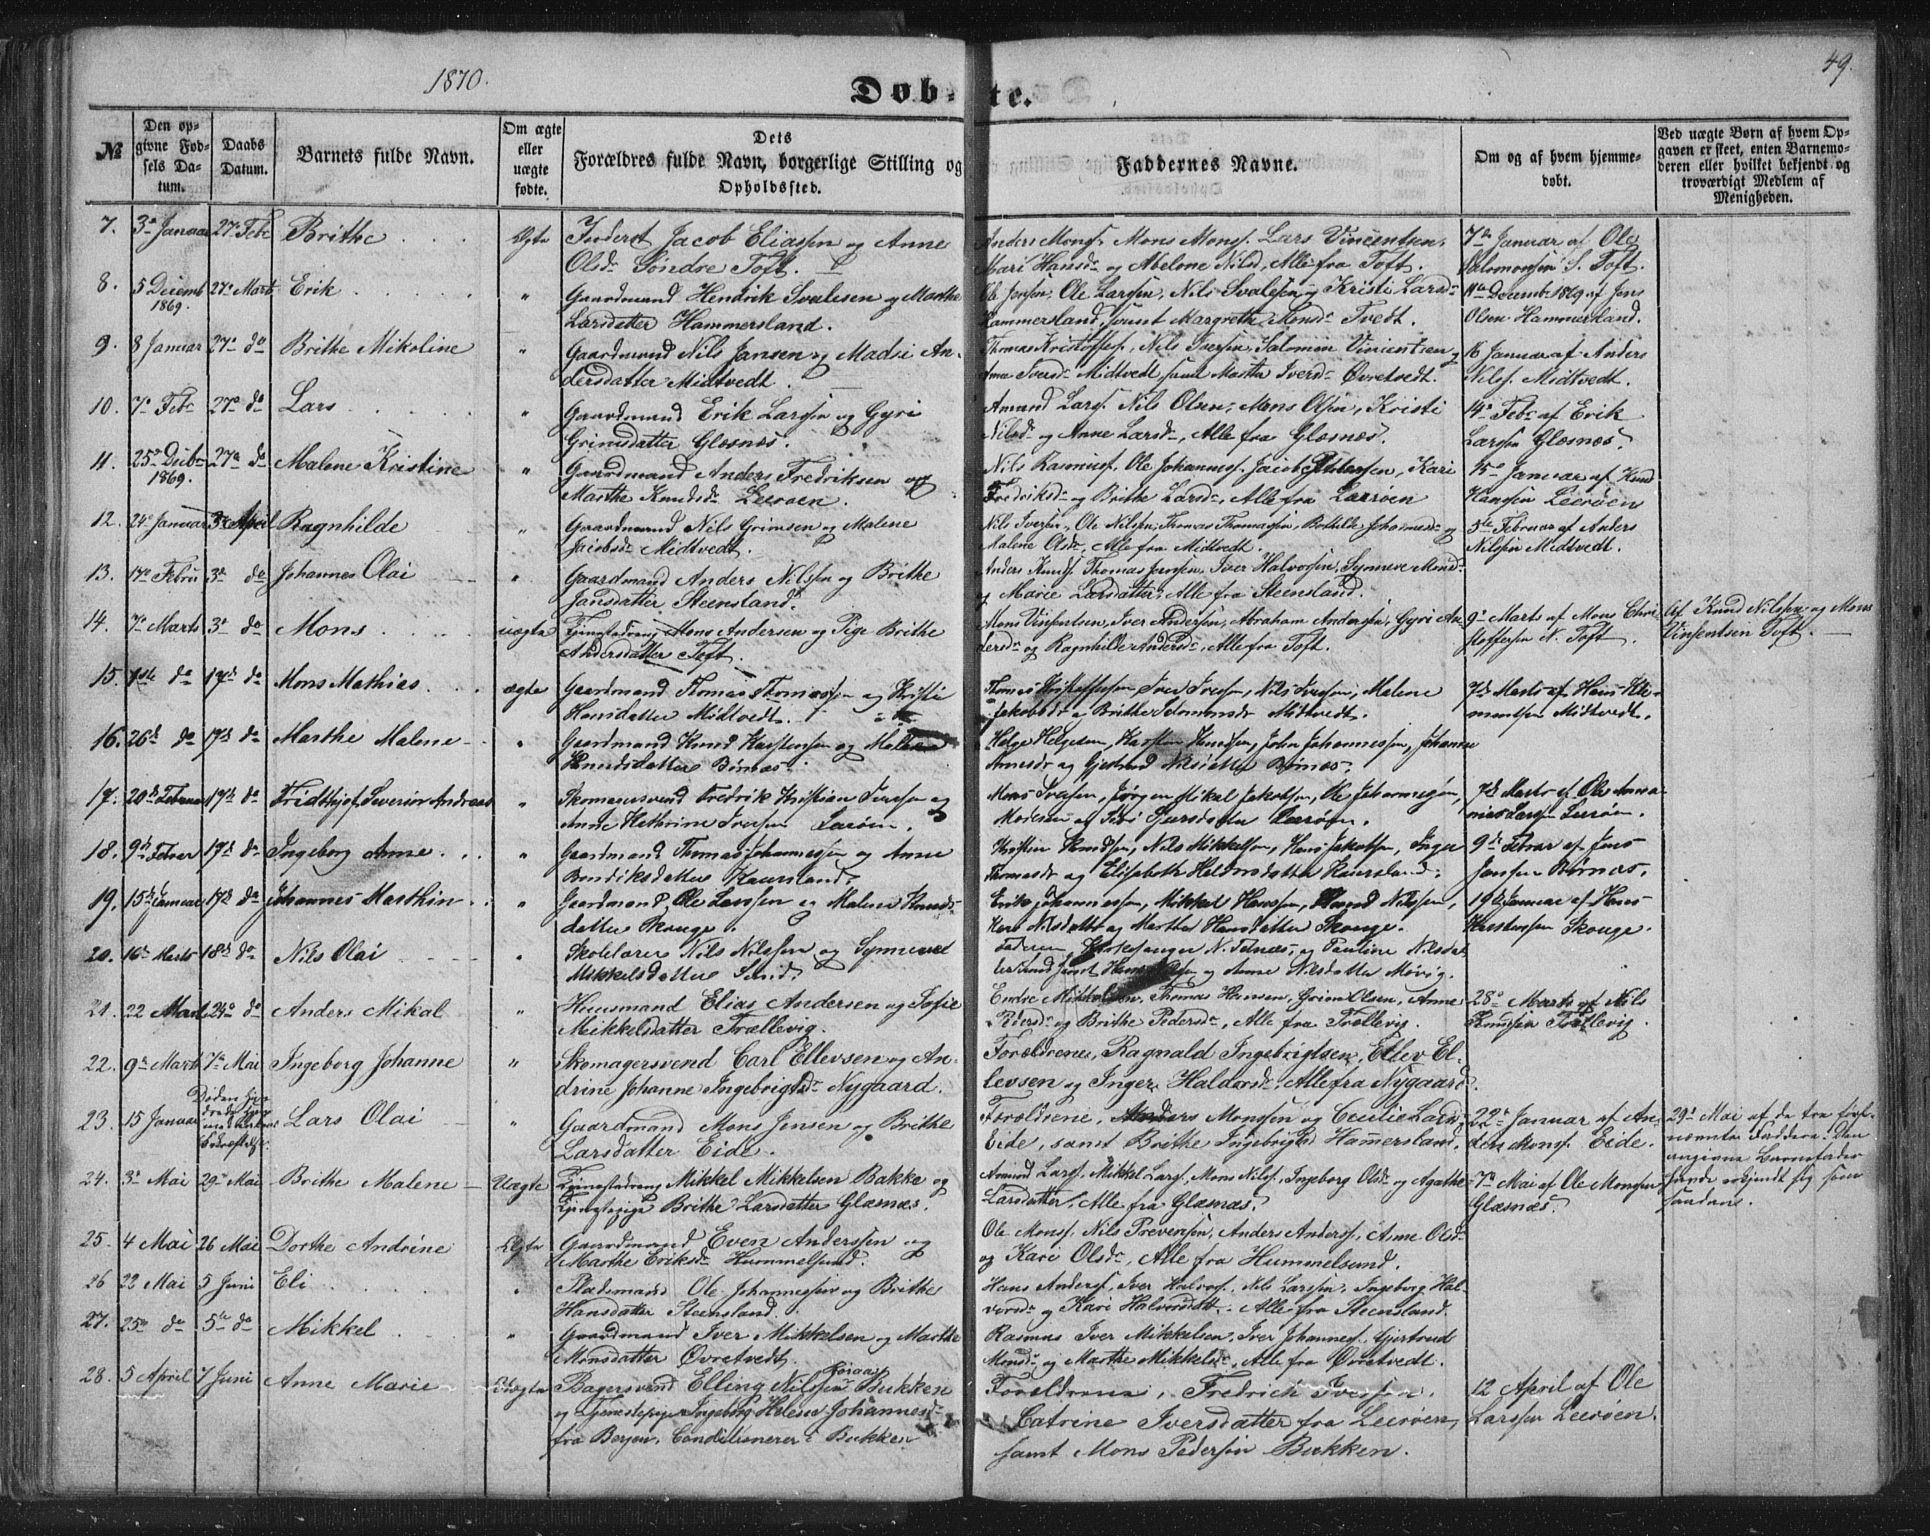 1870.
49.
Døb-te.
№
Den op-
givne Fød-
sels Da-
tum.
Daabs
Datum.
Barnets fulde Navn.
Om ægte
eller
uægte
fødte.
Dets
Forældres fulde Navn, borgerlige Stilling og
Opholdssted.
Faddernes Navne.
Om og af hvem hjemme-
døbt.
Ved uægte Børn af hvem Op-
gaven er skeet, enten Barnemo-
deren eller hvilket bekjendt og
troværdigt Medlem af
Menigheden.
7. 3 Januar 27 Feb Brithe Ægte Jacob Eliassen og Anne
Olsd. Søndre Toft.
Anders Mons. Mons Mons. Lars Vincentsen,
Mari Hansd. og Abelone Nilsd, Alle fra Toft.
7 Januar af Ole
Salomonsen S. Toft.
8. 5 Decemb 27 Marts Erik " Gaardmand Hendrik Svalesen og Marthe
1869.
Larsdatter Hammersland.
Ole Jensen, Ole Larssen, Nils Svalesen og Kristi Larsd.
Hammersland, samt Margrethe Monsd. Tvedt.
Decemb 1869 af Jens
Olsen Hammersland.
9. 8 Januar 27 do Brithe Mikoline " Gaardmand Nils Jansen og Madsi An-
dersdatter Midtvedt.
Thomas Kristoffers. Nils Iversen, Salomon Vincentsen og
Anna Iversd. Midtvedt samt Martha Iversd. Øvretvedt.
16 Januar af Anders
Nilss. Midtvedt.
10. 7 Feb 27 do Lars Gaardmand Erik Larssen og Gyri
Grimsdatter Glæsnæs.
Amund Lars. Nils Olsen, Mons Olsen, Kristi
Nilsd. og Anne Larsd., Alle fra Glæsnæs.
14 Feb af Erik
Larssen Glæsnæs.
11. 25 Decb 27 do Malene Kristine " Gaardmand Anders Fredriksen og
1869.
Marthe Knudsd. Leerøen.
Nils Rasmuss. Ole Johanness. Jacob Pedersen, Kari
Fredriksd. og Brithe Larsd., Alle fra Leerøen
15 Januar af Knud
Hanssen Leerøen
12. 21 Januar 3 April Ragnhilde " Gaardmand Nils Grimsen og Malene
Jacobsd. Midtvedt.
Nils Iversen, Ole Nilsen, Thomas Thomassen, Bothilde Johannesd. og
Malene Olsd., Alle fra Midtvedt.
5te Februar af Anders
Nilssen Midtvedt.
13. 17 Febru 3 do Johannes Olai " Gaardmand Anders Nilssen og Brithe
Jansdatter Steensland.
Anders Knuds. Thomas Jensen, Iver Halvorsen, Synneve Monsd.
og Marie Larsdatter, Alle fra Steensland.
14. 7 Marts 3 do Mons uægte Ungkarl Mons Andersen og Pige Brithe
Andersdatter Toft.
Mons Vinsentsen, Iver Andersen, Abraham Andersen, Gyri An-
dersd. og Ragnhilde Andersd., Alle fra Toft.
9 Marts af Mons Chri
stoffersen N. Toft
Af Knud Nilssen og Mons
Vinsentsen Toft.
15. 1ste do 17 do Mons Mathias ægte Gaardmand Thomas Thomassen og Kristi
Hansdatter Midtvedt.
Thomas Kristoffersen, Iver Iversen, Nils Iversen, Malene
Jakobsdr og Brithe Salmonsdr Midtvedt.
7de Marts af Hans Kle-
mentsen Midtvedt.
16. 26 do 17 do Marthe Malene Gaardmand Knud Karstensen og Malene
Knudsdatter Børnæs.
Helge Helgesen, Karsten Knudsen, John Johannessen, Johanne
Annesdr og Gjertrud Nilsdatter Børnæs.
17. 20 Februar 17 do Fridthjof Severin Andreas " Skomagersvend Fredrik Kristian Iversen og
Anne Kathrine Iversen Lerøen.
Mons Iversen, Jørgen Mikal Jakobsen, Ole Johannesen,
Madsen og Siri Sjursdatter Leerøen.
7de Marts af Ole Anna-
nias Larsen Leerøen.
18. 9 Februar 17 do Ingeborg Anne " Gaardmand Thomas Johannessen og Anne
Bendiksdatter Kaursland.
Kristian Knudsen, Nils Mikkelsen, Hans Jakobsen, Inger
Thomasdr og Elisabeth Heldresdatter Kaursland.
9de Februar af Jens
Jensen Børnæs.
19. 15 Januar 17 do Johannes Marthin " Gaardmand, Ole Larssen og Malene Knuds-
datter Skouge.
Erik Johannessen, Mikkel Hanssen, Knud Nilssen,
Kari Nilsdatter og Marthe Hansdatter Skouge.
19de Januar af Hans
Skouge.
20. 16 Marts 18 do Nils Olai Skolelærer Nils Nilssen og Synneve
Mikkelsdatter Sund.
Faderen, Kirkesanger N. Telnæs, og Pauline Nilsdat-
ter Sund samt og Anne Nilsdatter Møvig.
21. 22 Mart 24 do Anders Mikal " Huusmand Elias Andersen og Sofie
Mikkelsdatter Trællevig.
Endre Mikkelsen, Thomas Hansen, Grim Olsen, Anne
Pedersd. og Brithe Pedersd., Alle fra Trællevig.
28 Marts af Nils
Knudsen Trællevig.
22. 9 Mart 7 Mai Ingeborg Johanne " Skomagersvend Carl Ellevsen og An-
drine Johanne Ingebrigtsd. Nygaard.
Forældrene, Ragnald Ingebrigtsen, Ellev El-
levsen og Inger Haldord. Alle fra Nygaard.
23. 15 Januar Lars Olai " Gaardmand Mons Jensen og Brithe
Larsdatter Eide.
Forældrene, Anders Monssen og Cecilie Larsd.
Eide, samt Brithe Ingebrigtsd Hamersland.
22 Januar af An-
ders Mons. Eide.
24. 3 Mai 29 Mai Brithe Malene Uægte Mikkel Mikkelsen Bakke og
Brithe Larsdatter Glæsnæs.
Amund Lars. Mikkel Lars. Mons Nils. Ingeborg Olsd. og Agathe
Larsdatter, Alle fra Glæsnæs.
7 Mai af Ole Monsen
Glæsnæs.
29 Mai af de tre først
nævnte Faddere. Den
angivne Barnefader
havde erkjendt sig som
saadan.
25. 4 Mai 26 Mai Dorthe Andrine Ægte Gaardmand Even Anderssen og
Marthe Eriksd. Hummelsund.
Ole Mons. Nils Prevensen, Anders Anders. Anne Olsd.
og Kari Olsd., Alle fra Hummelsund.
26 22 Mai 5 Juni Eli Pladsmand Ole Johannessen og Brithe
Hansdatter Steensland.
Hans Anders. Iver Halvors. Nils Larssen, Ingeborg Hal-
vorsd. og Kari Halvorsdatt. Alle fra Steensland
27. 25 do 5te do Mikkel " Gaardmand Iver Mikkelsen og Marthe
Monsdatter Øvretvedt.
Rasmus Iver Mikkelsen, Iver Johannes. Gjertrud
Monsd. og Marthe Mikkelsd., Alle fra Øvretvedt.
28. 5 April 7 Juni Anne Marie Uægte Bagersvend Elling Nilssen Bukken
og Tjenestepige Ingeborg Helene Johannesd.
fra Bergen, Conditionerer i Bukken
Forældrene, Fredrich Iversen,
Catrine Iversdatter fra Leerøen,
samt Mons Pedersen Bukken.
12 April af Ole
Larssen Leerøen.